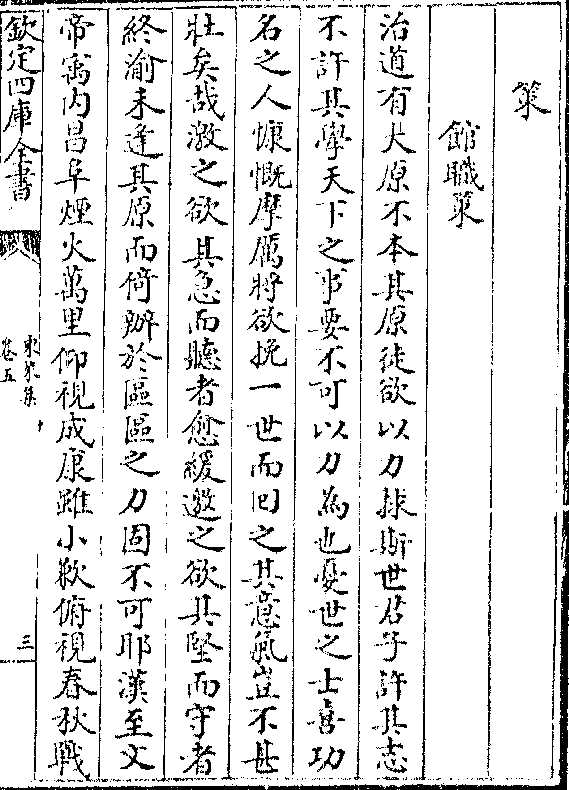 策
館職策
治道有大原不本其原徒欲以力捄斯世君子許其志
不許其學天下之事要不可以力為也憂世之士喜功
名之人慷慨摩厲將欲挽一世而回之其意氣豈不甚
壯矣哉激之欲其急而聽者愈緩邀之欲其堅而守者
終渝未逢其原而倚辦於區區之力固不可耶漢至文
帝寓内昌阜煙火萬里仰視成康雖小歉俯視春秋戰
欽定四庫全書
東萊集
卷五
三